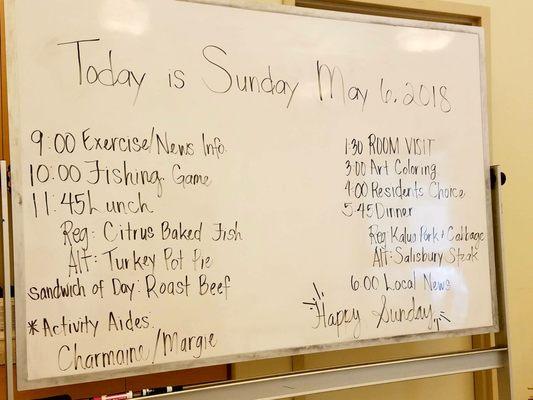 Today is Sunday May 6, 2018
9:00 Exercise/News Info.
10:00 Fishing Game
11:45 Lunch
Reg: Citrus Baked Fish
Alt: Turkey Pot Pie
Sandwich of Day: Roast Beef
*Activity Aides:
Charmaine/Margie
1:30 ROOM VISIT
3:00 Art Coloring
4:00 Residents Choice
5:45 Dinner
Reg: Kalua Pork + Cabbage
Alt: Salisbury Steak
6:00 Local News
Happy Sunday